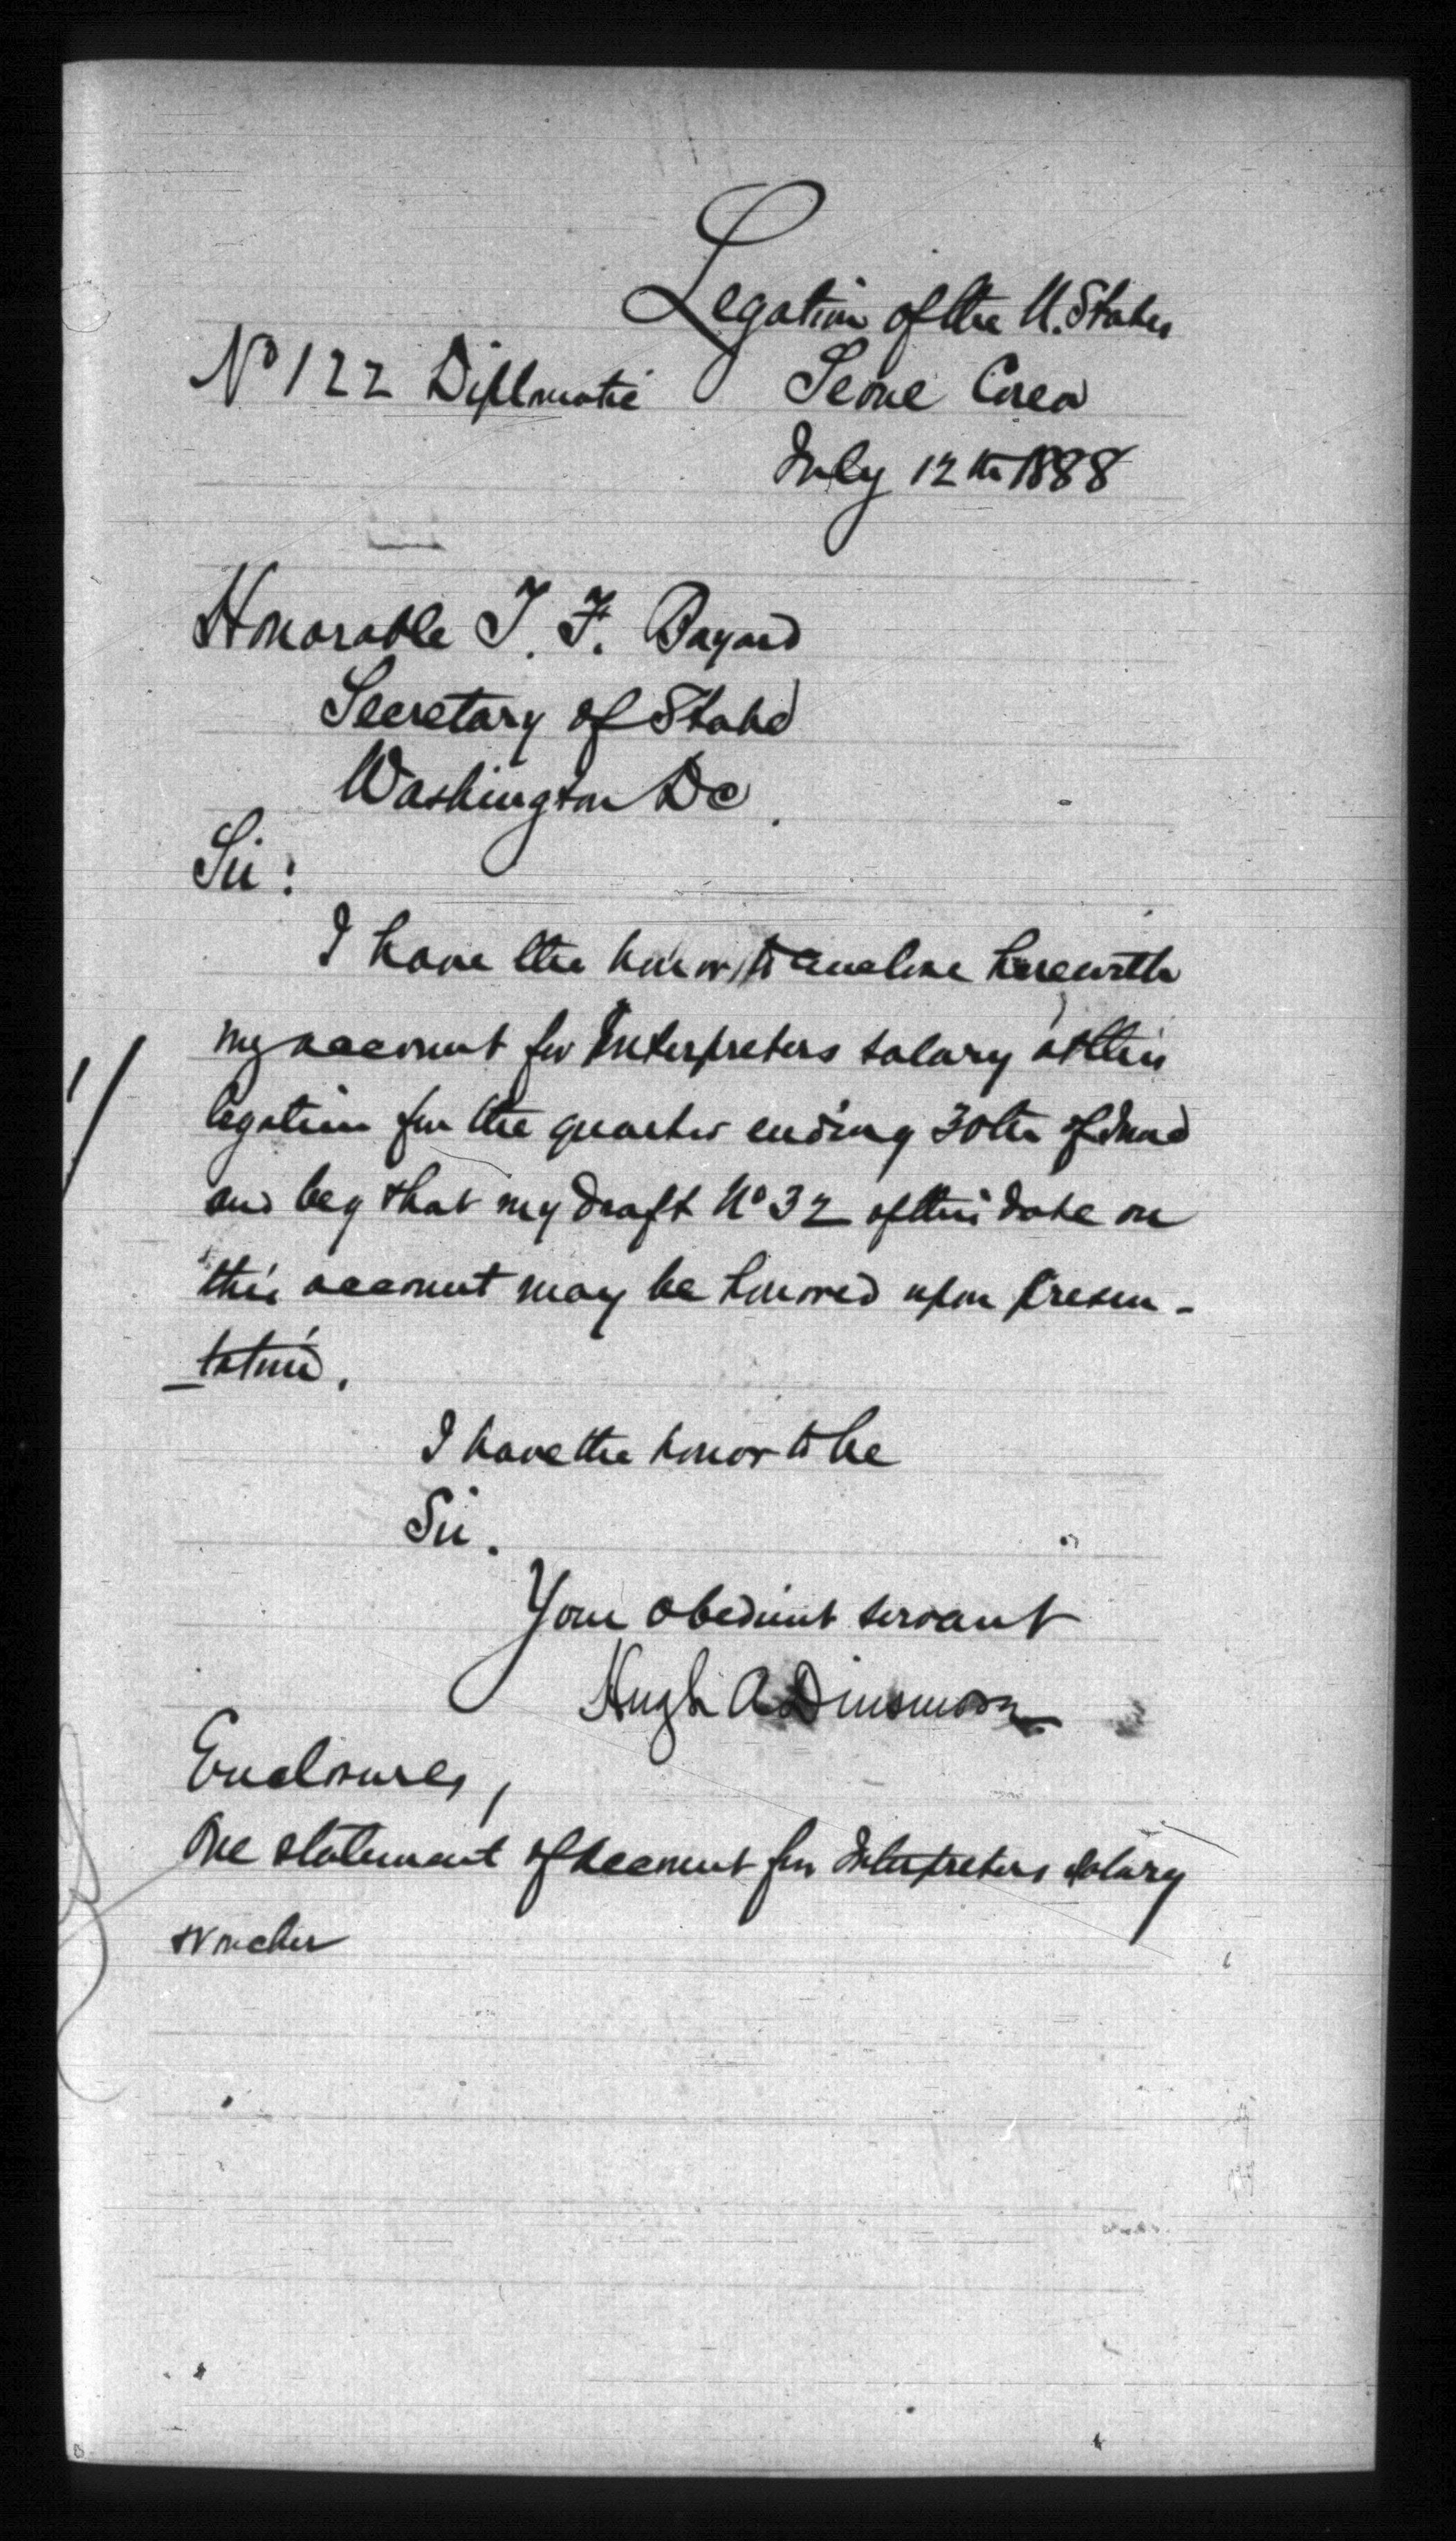 Legation of the U. States
No 122 Diplomatic Seoul Corea
July 12th 1888
Honorable T. F. Bayard
Secretary of State
Washington D C.
Sir:
I have the honor to enclose herewith
my account for Interpreters salary at this
legation for the quarter ending 30th of June
and beg that my draft No 32 of this date on
this account may be honored upon presen-
tation.
I have the honor to be
Sir.
Your obedient servant
Hugh A Dinsmore
Enclosures,
One statement of account for Interpreters salary
& Voucher